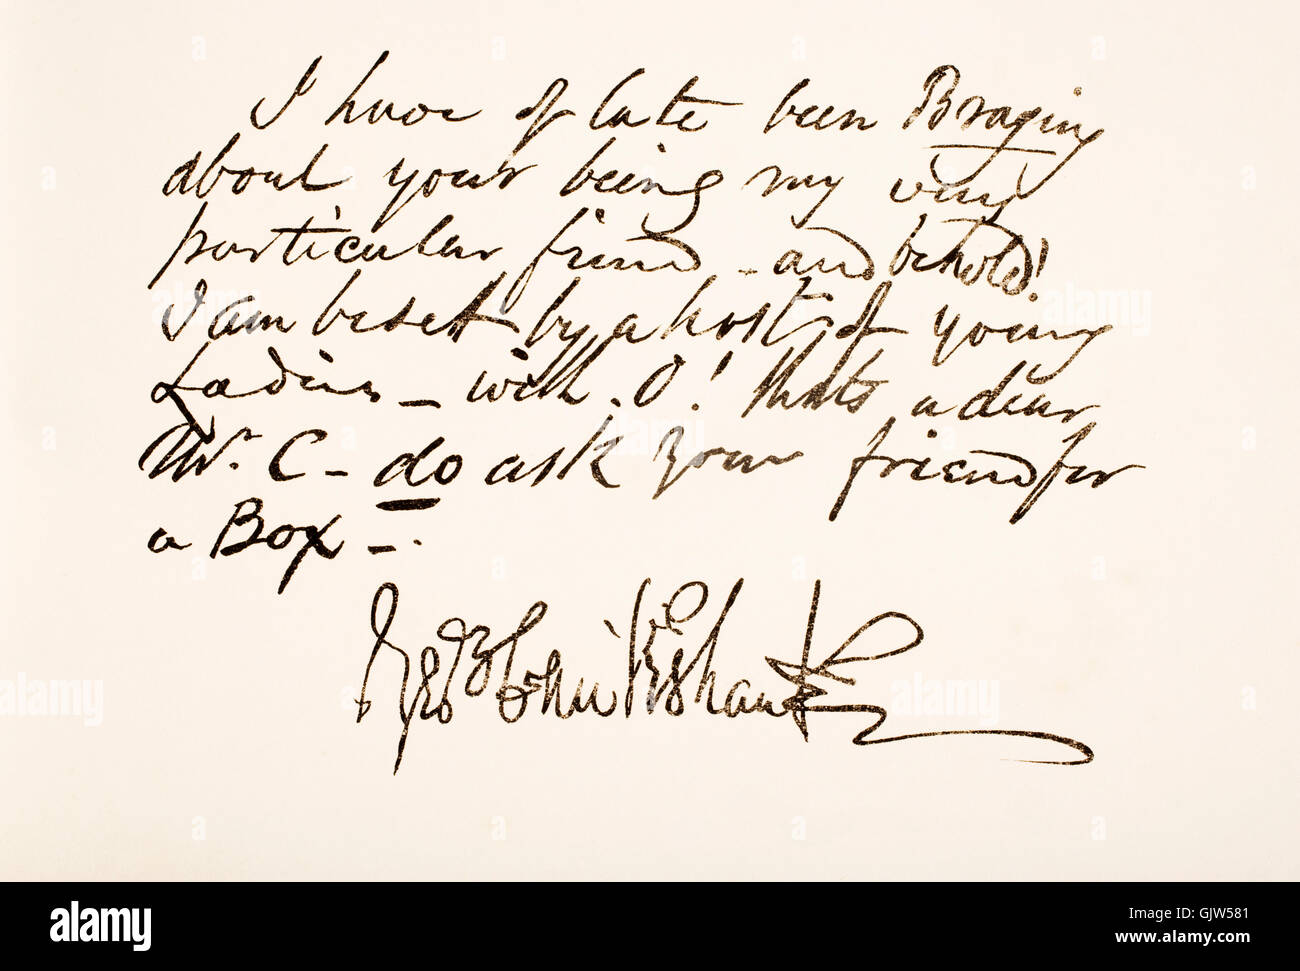 I have of late been Braging
about your being my very
particular friend - and behold!
I am beset by a host of young
Ladies - with - O! thats a dear
Mr. C - do ask your friend for
a Box -.
Geo Cruikshank
alamy
Image ID: GJW581
www.alamy.com